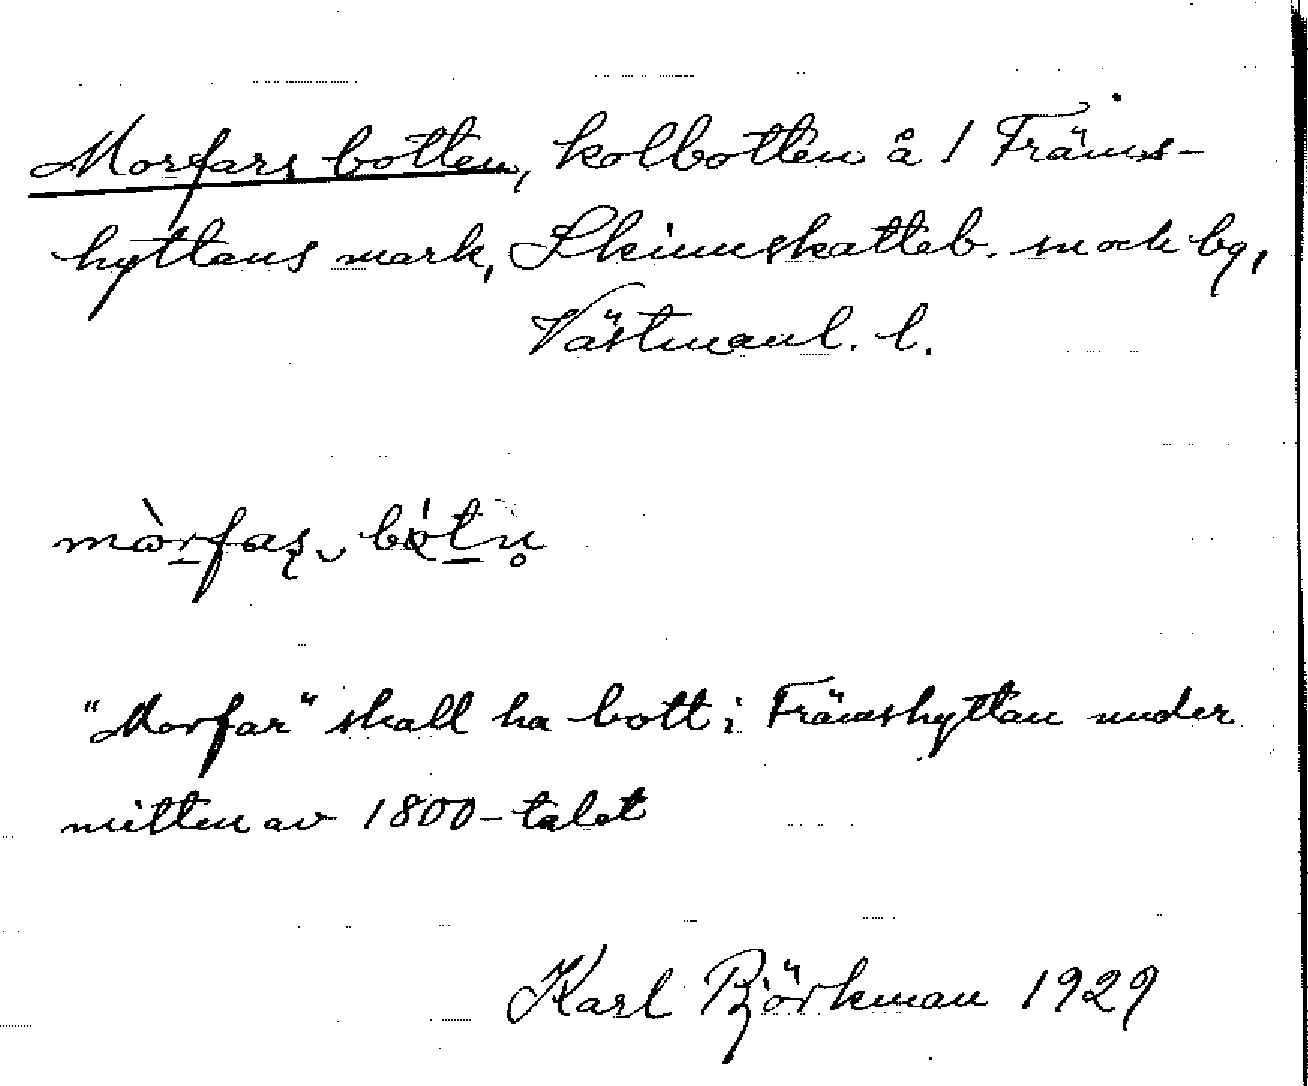 Morfars botten, kolbotten å 1 Främs-
hyttans mark, Skinnskatteb. sn och bg,
Västmanl. l.
mòrfaʂ bótn̥
"Morfar" skall ha bott i Främshyttan under
mitten av 1800-talet
Karl Björkman 1929